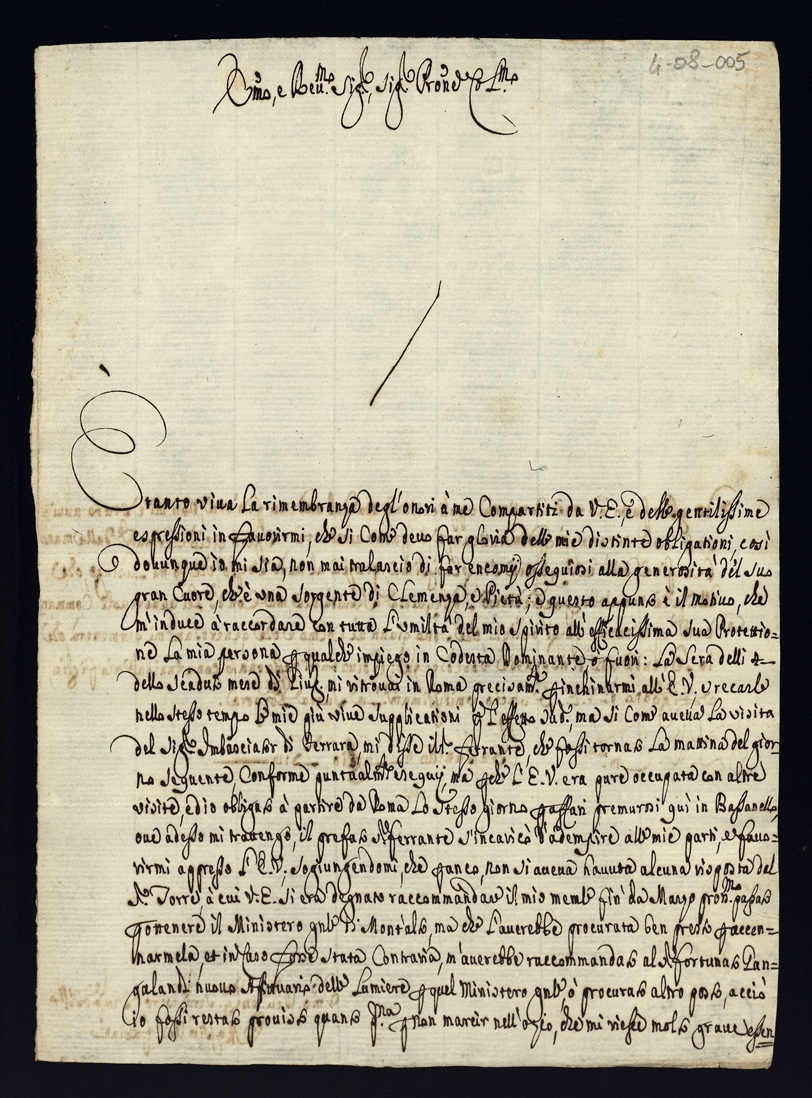 4-08-005
Em.o, e Reu.mo Sig.r, Sig.r Prone Col.mo
È tanto viua la rimembranza degl'onori à me Compartiti da V.E., e delle gentilissime
espressioni in fauorirmi, che si Come deuo far gloria delle mie distinte obligationi, così
douunque io mi sia, non mai tralascio di far encomij ossequiosi alla generosità del suo
gran Cuore, ch'è una sorgente di Clemenza, e Pietà; e questo appunto è il motiuo, che
m'induce à raccordare con tutta l'Umiltà del mio spirito all'efficacissima sua Protettio=
ne la mia persona p qualche impiego in Codesta Dominante, ò fuori: La sera delli 4
dello scaduto mese di mi ritrouai in Roma precisam.te p inchinarmi all'E.V. e recarle
nello stesso tempo le mie più viue supplicationi p l'effetto sud.o, ma si Come aueua la visita
del Sig.r Imbasciator di Ferrara, mi disse il S.r Ferrante, che fossi tornato la mattina del gior=
no seguente, Conforme puntualm.te eseguij, mà p che l'E.V. era pure occupata con altre
visite, ed io obligato à partire da Roma lo stesso giorno p affari premurosi quì in Bassanello,
oue adesso mi trattengo, il prefato S.r Ferrante s'incaricò d'adempire alle mie parti, e fauo=
rirmi appresso l'E.V., sogiungendomi, che p anco, non si aueua hauuta alcuna risposta dal
S.r Torre, à cui V.E. si era degnata raccommandar il mio mem.le fin da Marzo pron.mo passato
p ottenere il Ministero gnle di Montalto, ma che l'auerebbe procurata ben presto p accen=
narmela, et in caso fosse stata Contraria, m'auerebbe raccommandato al S.r Fortunato Pan=
galandi nuouo Affittuario delle Lumiere p quel Ministero gnle ò procurato altro posto, acciò
io fossi restato prouisto quanto p.ma p non marcir nell'ozio, che mi riesce molto graue essen